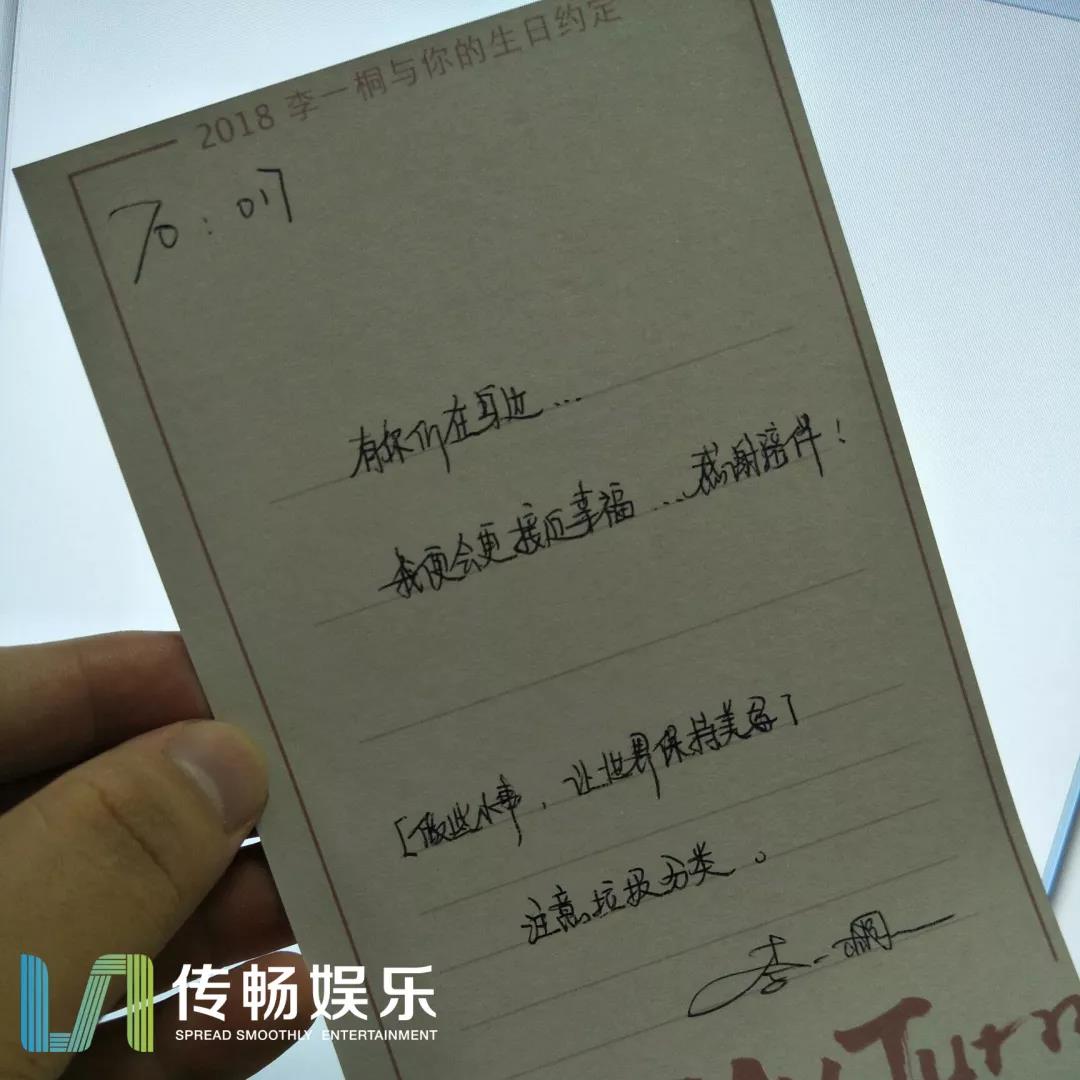 2018 李一桐与你的生日约定
To:
有你们在耳边...
我便会更接近幸福...感谢陪伴!
[做些小事,让世界保持美. 了
注意垃圾分类。
李一桐
My Turn
传畅娱乐
SPREAD SMOOTHLY ENTERTAINMENT